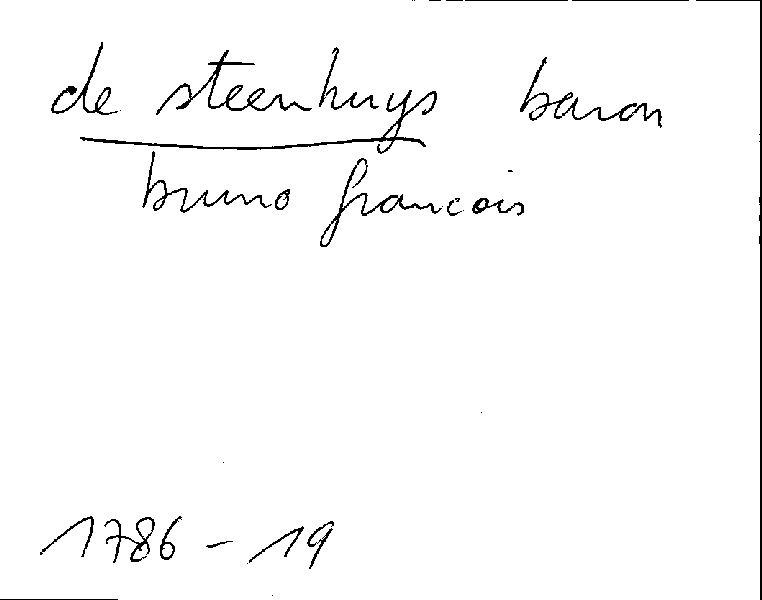 de steenhuys baron
bruno francois
1786 - 19